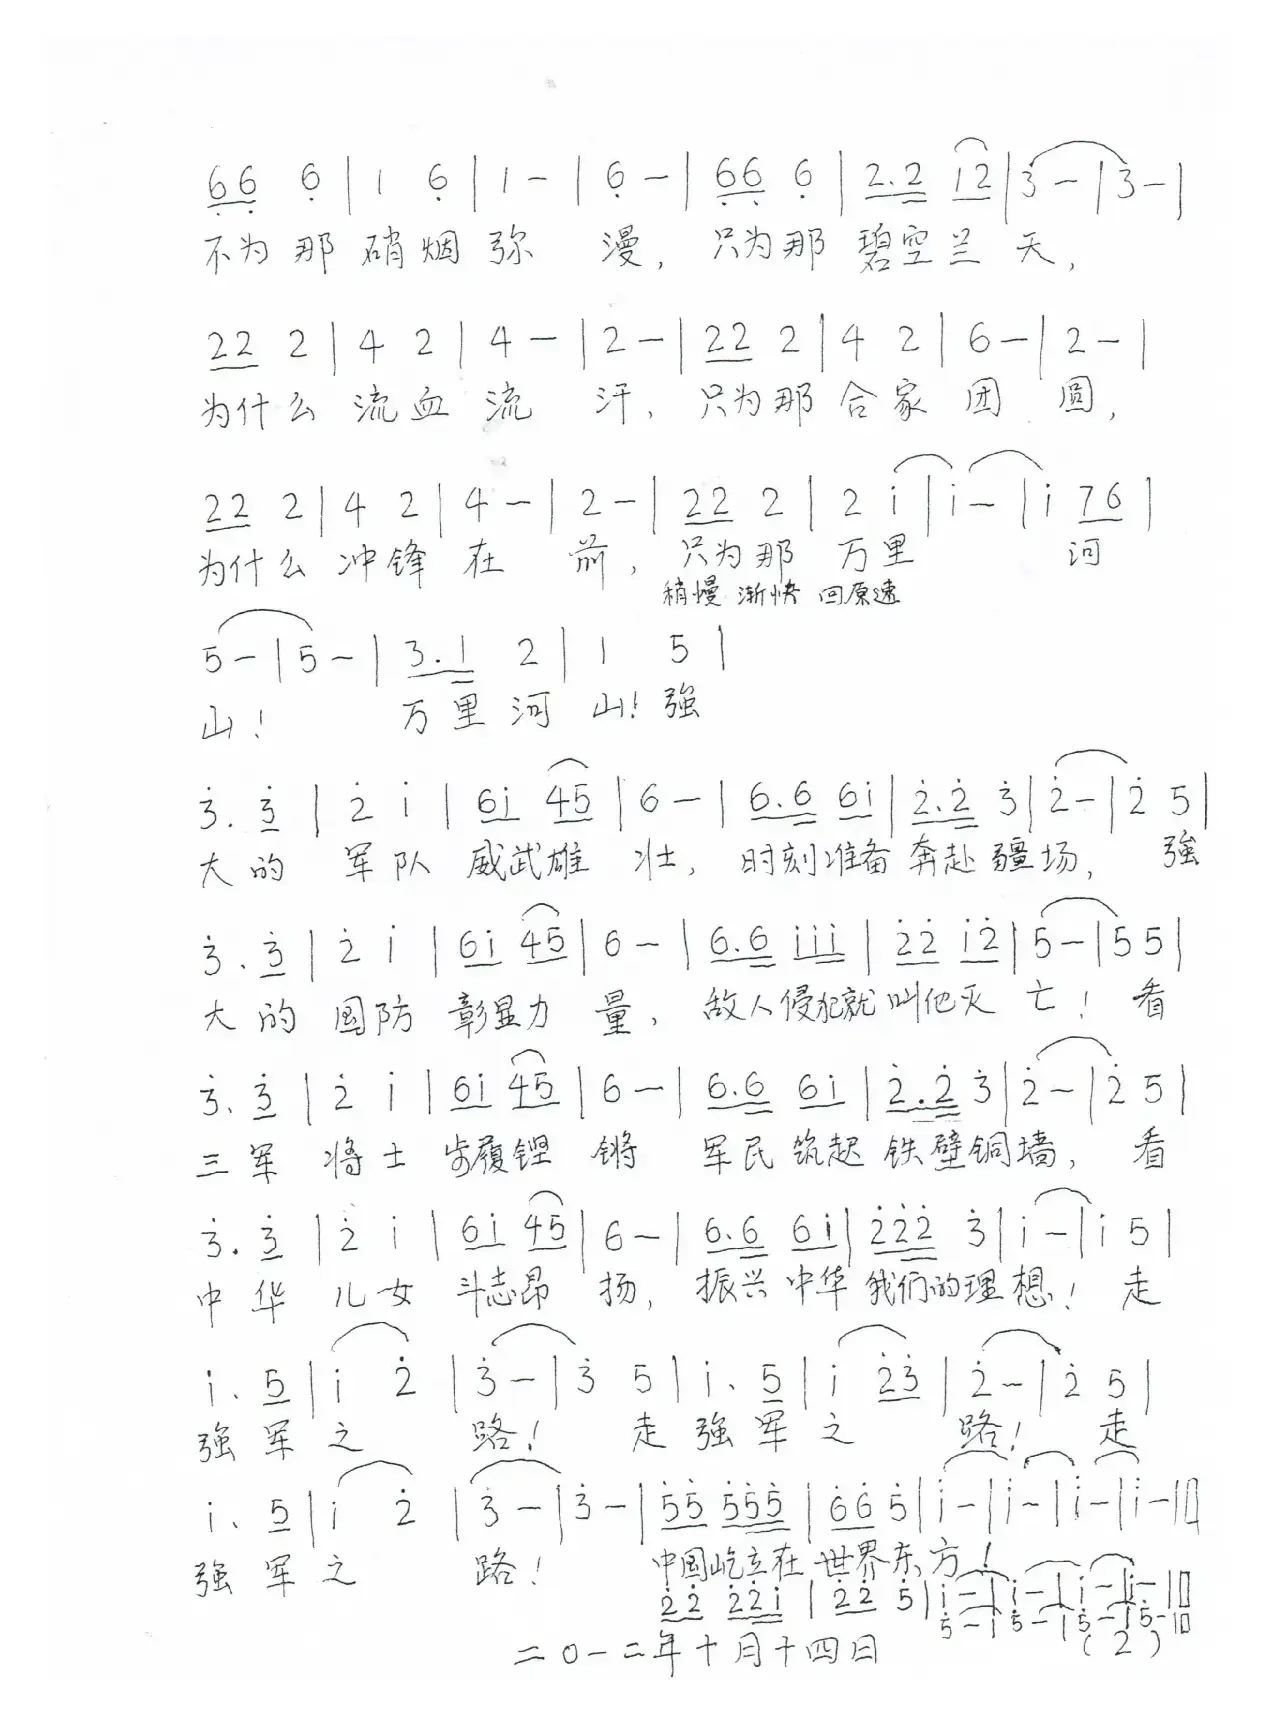 66 6 | 1 6 | 1 - | 6 - | 66 6 | 2.2 12 | 3 - | 3 - |
不为那硝烟弥 漫，只为那碧空兰天，
22 2 | 4 2 | 4 - | 2 - | 22 2 | 4 2 | 6 - | 2 - |
为什么流血流 汗，只为那合家团 圆，
22 2 | 4 2 | 4 - | 2 - | 22 2 | 2 i | i - | i 76 |
为什么冲锋在 前，只为那万里 河
稍慢 渐快 回原速
5 - | 5 - | 3.1 2 | 1 5 |
山！ 万里河山！強
3. 3 | 2 i | 6i 45 | 6 - | 6.6 6i | 2.2 3 | 2 - | 2 5 |
大的军队威武雄壮，时刻准备奔赴疆场，強
3. 3 | 2 i | 6i 45 | 6 - | 6.6 iii | 22 i2 | 5 - | 5 5 |
大的国防彰显力量，敌人侵犯就叫他灭亡！看
3. 3 | 2 i | 6i 45 | 6 - | 6.6 6i | 2.2 3 | 2 - | 2 5 |
三军将士步履铿锵 军民筑起铁壁铜墙，看
3. 3 | 2 i | 6i 45 | 6 - | 6.6 6i | 222 3 | i - | i 5 |
中华儿女斗志昂扬，振兴中华我们的理想！走
i. 5 | i 2 | 3 - | 3 5 | i. 5 | i 23 | 2 - | 2 5 |
強军之 路！ 走強军之 路！ 走
i. 5 | i 2 | 3 - | 3 - | 55 555 | 66 5 | i - | i - | i - | i - ||
強军之 路！ 中国屹立在世界东方！
22 22i | 22 5 | i - | i - | i - | i - ||
5 - | 5 - | 5 - | 5 - ||
二〇一二年十月十四日 (2)